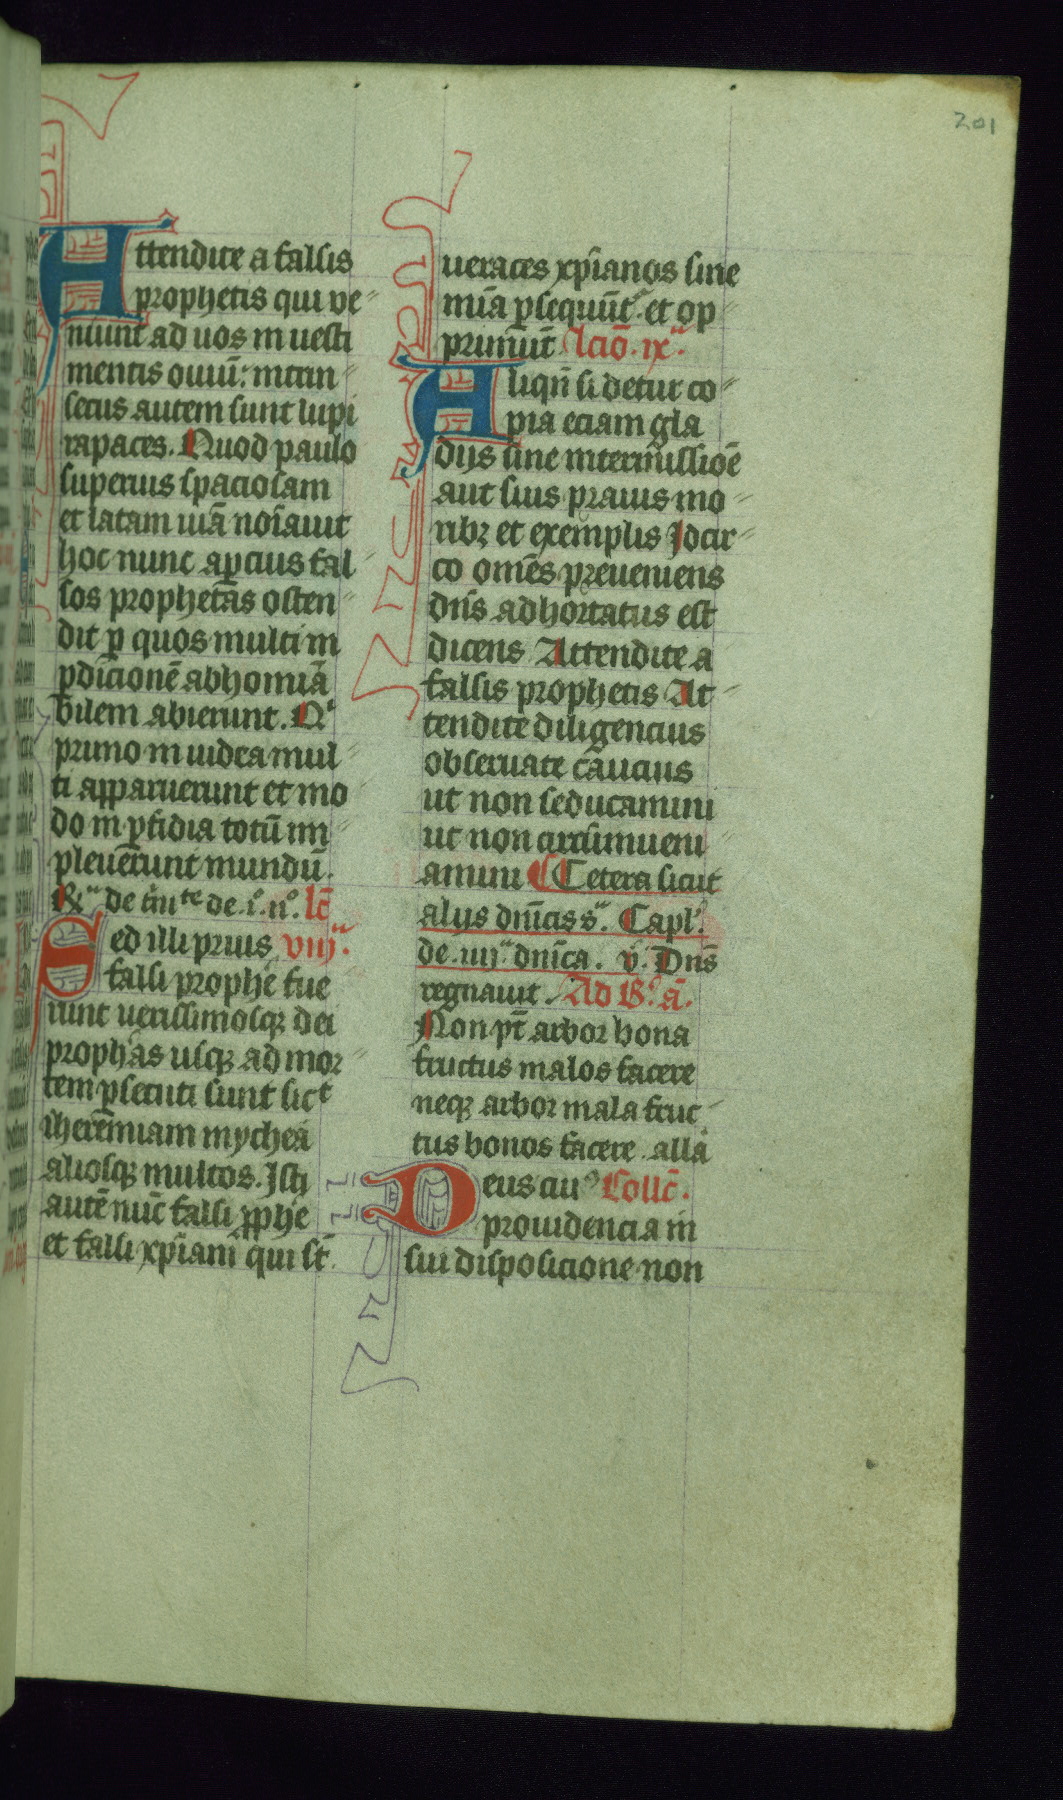 201
Attendite a falsis
prophetis qui ve
niunt ad uos in uesti
mentis ouiū: intrin
secus autem sunt lupi
rapaces. Quod paulo
superius spaciosam
et latam uiā noīauit
hoc nunc apcius fal
sos prophetās osten
dit p quos multi in
pdicionē abhomiā
bilem abierunt. Qi
primo in iudea mul
ti apparuerunt et mo
do in pfidia totū im
pleuērunt mundū.
de t̄nite de .i. n°. lc̄
Sed illi prius viijᵃ.
falsi prophe fue
runt uerissimosqꝫ dei
prophās usqꝫ ad mor
tem psecuti sunt sict
iherēmiam mycheā
aliosqꝫ multos. Isti
autē nūc falsi pphe
et falsi xp̄iani qui st̄
ueraces xp̄ianos sine
mīa psequūt. et op
primūt lcīo. ixᵃ.
Aliqn̄ si detur co
pia eciam gla
dijs sine intermissioē
aut suis prauis mo
ribꝫ et exemplis Idcir
co omēs preueniens
dn̄s adhortatus est
dicens Attendite a
falsis prophetis At
tendite diligencius
obseruate cāucius
ut non seducamini
ut non circumueni
amini Cetera sicut
alijs dn̄icis sᵃ. Capl°.
de .iijᵃ dn̄ica. v̄. Dn̄s
regnauit. Ad B° ā.
Non pt̄ arbor bona
fructus malos facere
neqꝫ arbor mala fruc
tus bonos facere. allā
Deus cuiꝰ Collc̄.
prouidencia in
sui disposicione non